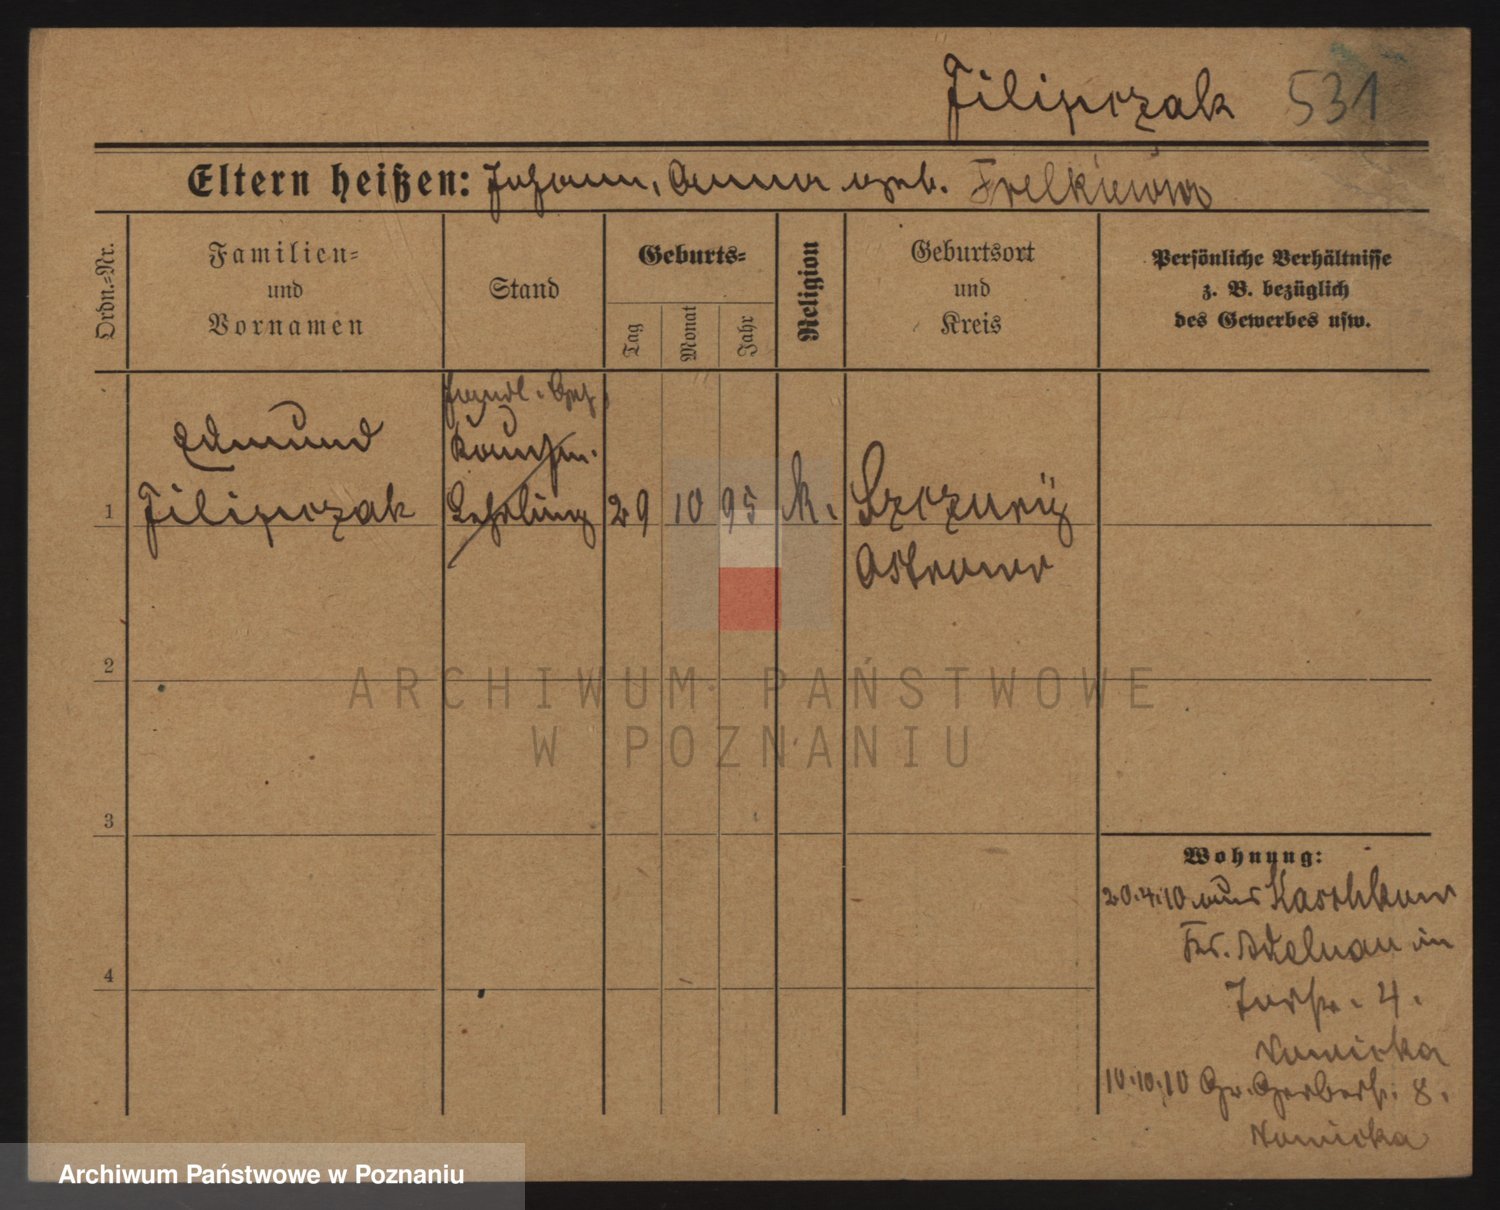 Filipczak 531
Eltern heißen: Johann, Anna geb.
Ordn.=Nr.
Familien=
und
Vornamen
Stand
Geburts=
Tag
Monat
Jahr
Religion
Geburtsort
und
Kreis
Persönliche Verhältnisse
z. B. bezüglich
des Gewerbes usw.
Handl. Geh.
Edmund
Kaufm.
1 Filipczak Lehrling 29 10 95 k. Szczury
Ostrowo
2
3
4
Wohnung:
20.4.10 aus Raschkow
Kr. Adelnau in
4.
Nowicka
10.10.10 Gr. Gerberstr. 8.
Nowicka
ARCHIWUM PAŃSTWOWE
W POZNANIU
Archiwum Państwowe w Poznaniu